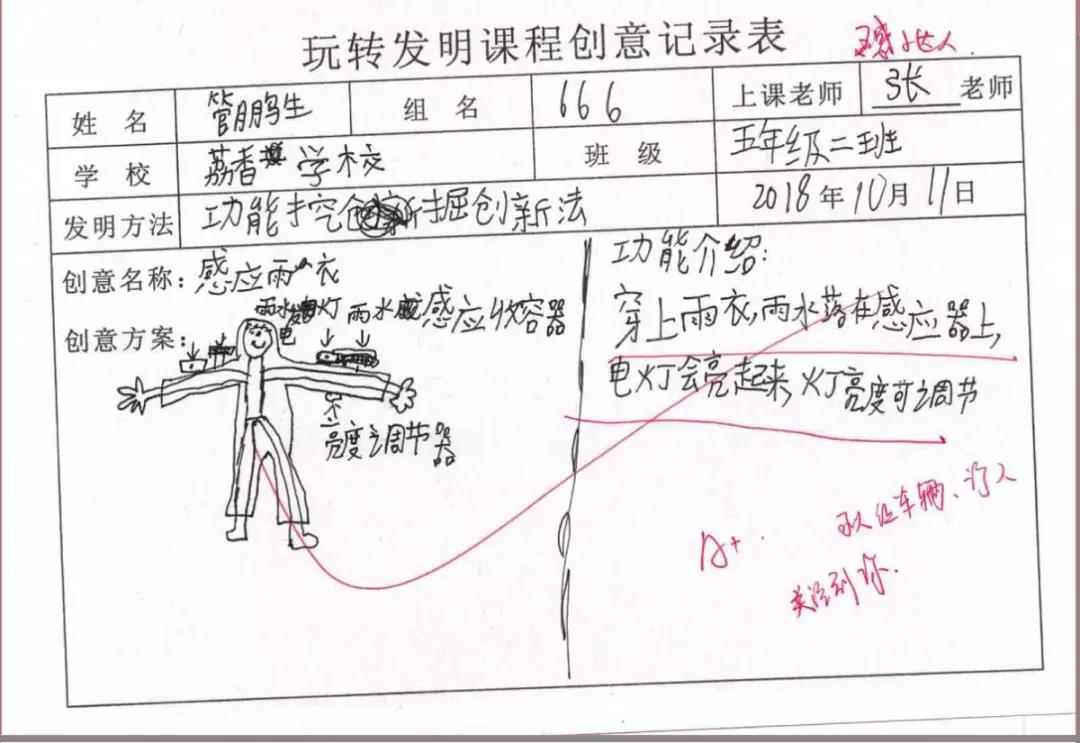 玩转发明课程创意记录表
小达人.
姓 名 管鹏生 组 名 666 上课老师 张 老师
学 校 荔香学校 班 级 五年级二班
发明方法 功能挖掘创新法 2018年10月11日
创意名称: 感应雨衣
创意方案:
雨水 灯 雨水感应收容器
电
亮度调节器
功能介绍:
穿上雨衣,雨水落在感应器上,
电灯会亮起来,灯亮度可调节
A+.
可以让车辆、行人
关注到你.